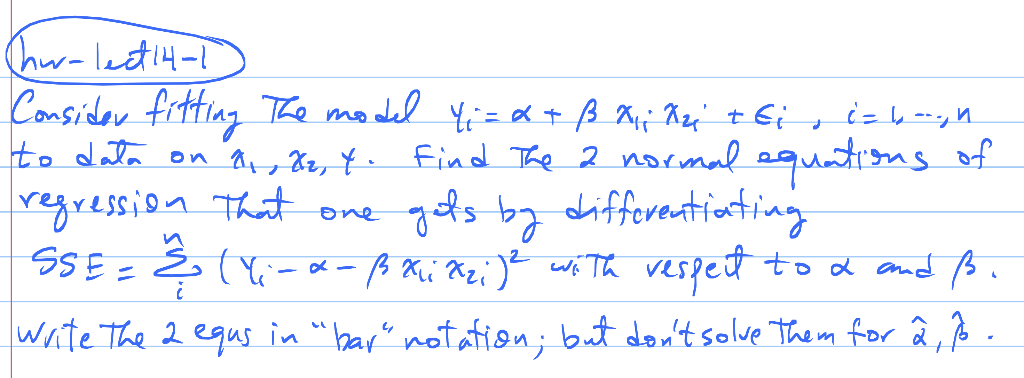 hw-lect14-1
Consider fitting The model yᵢ = α + β x₁ᵢ x₂ᵢ + ϵᵢ , i=1, ---, n
to data on x₁, x₂, y. Find The 2 normal equations of
regression That one gets by differentiating
SSE = Σᵢⁿ (yᵢ - α - β x₁ᵢ x₂ᵢ)² wiTh respect to α and β.
Write The 2 equs in "bar" notation; but don't solve Them for α̂, β̂.